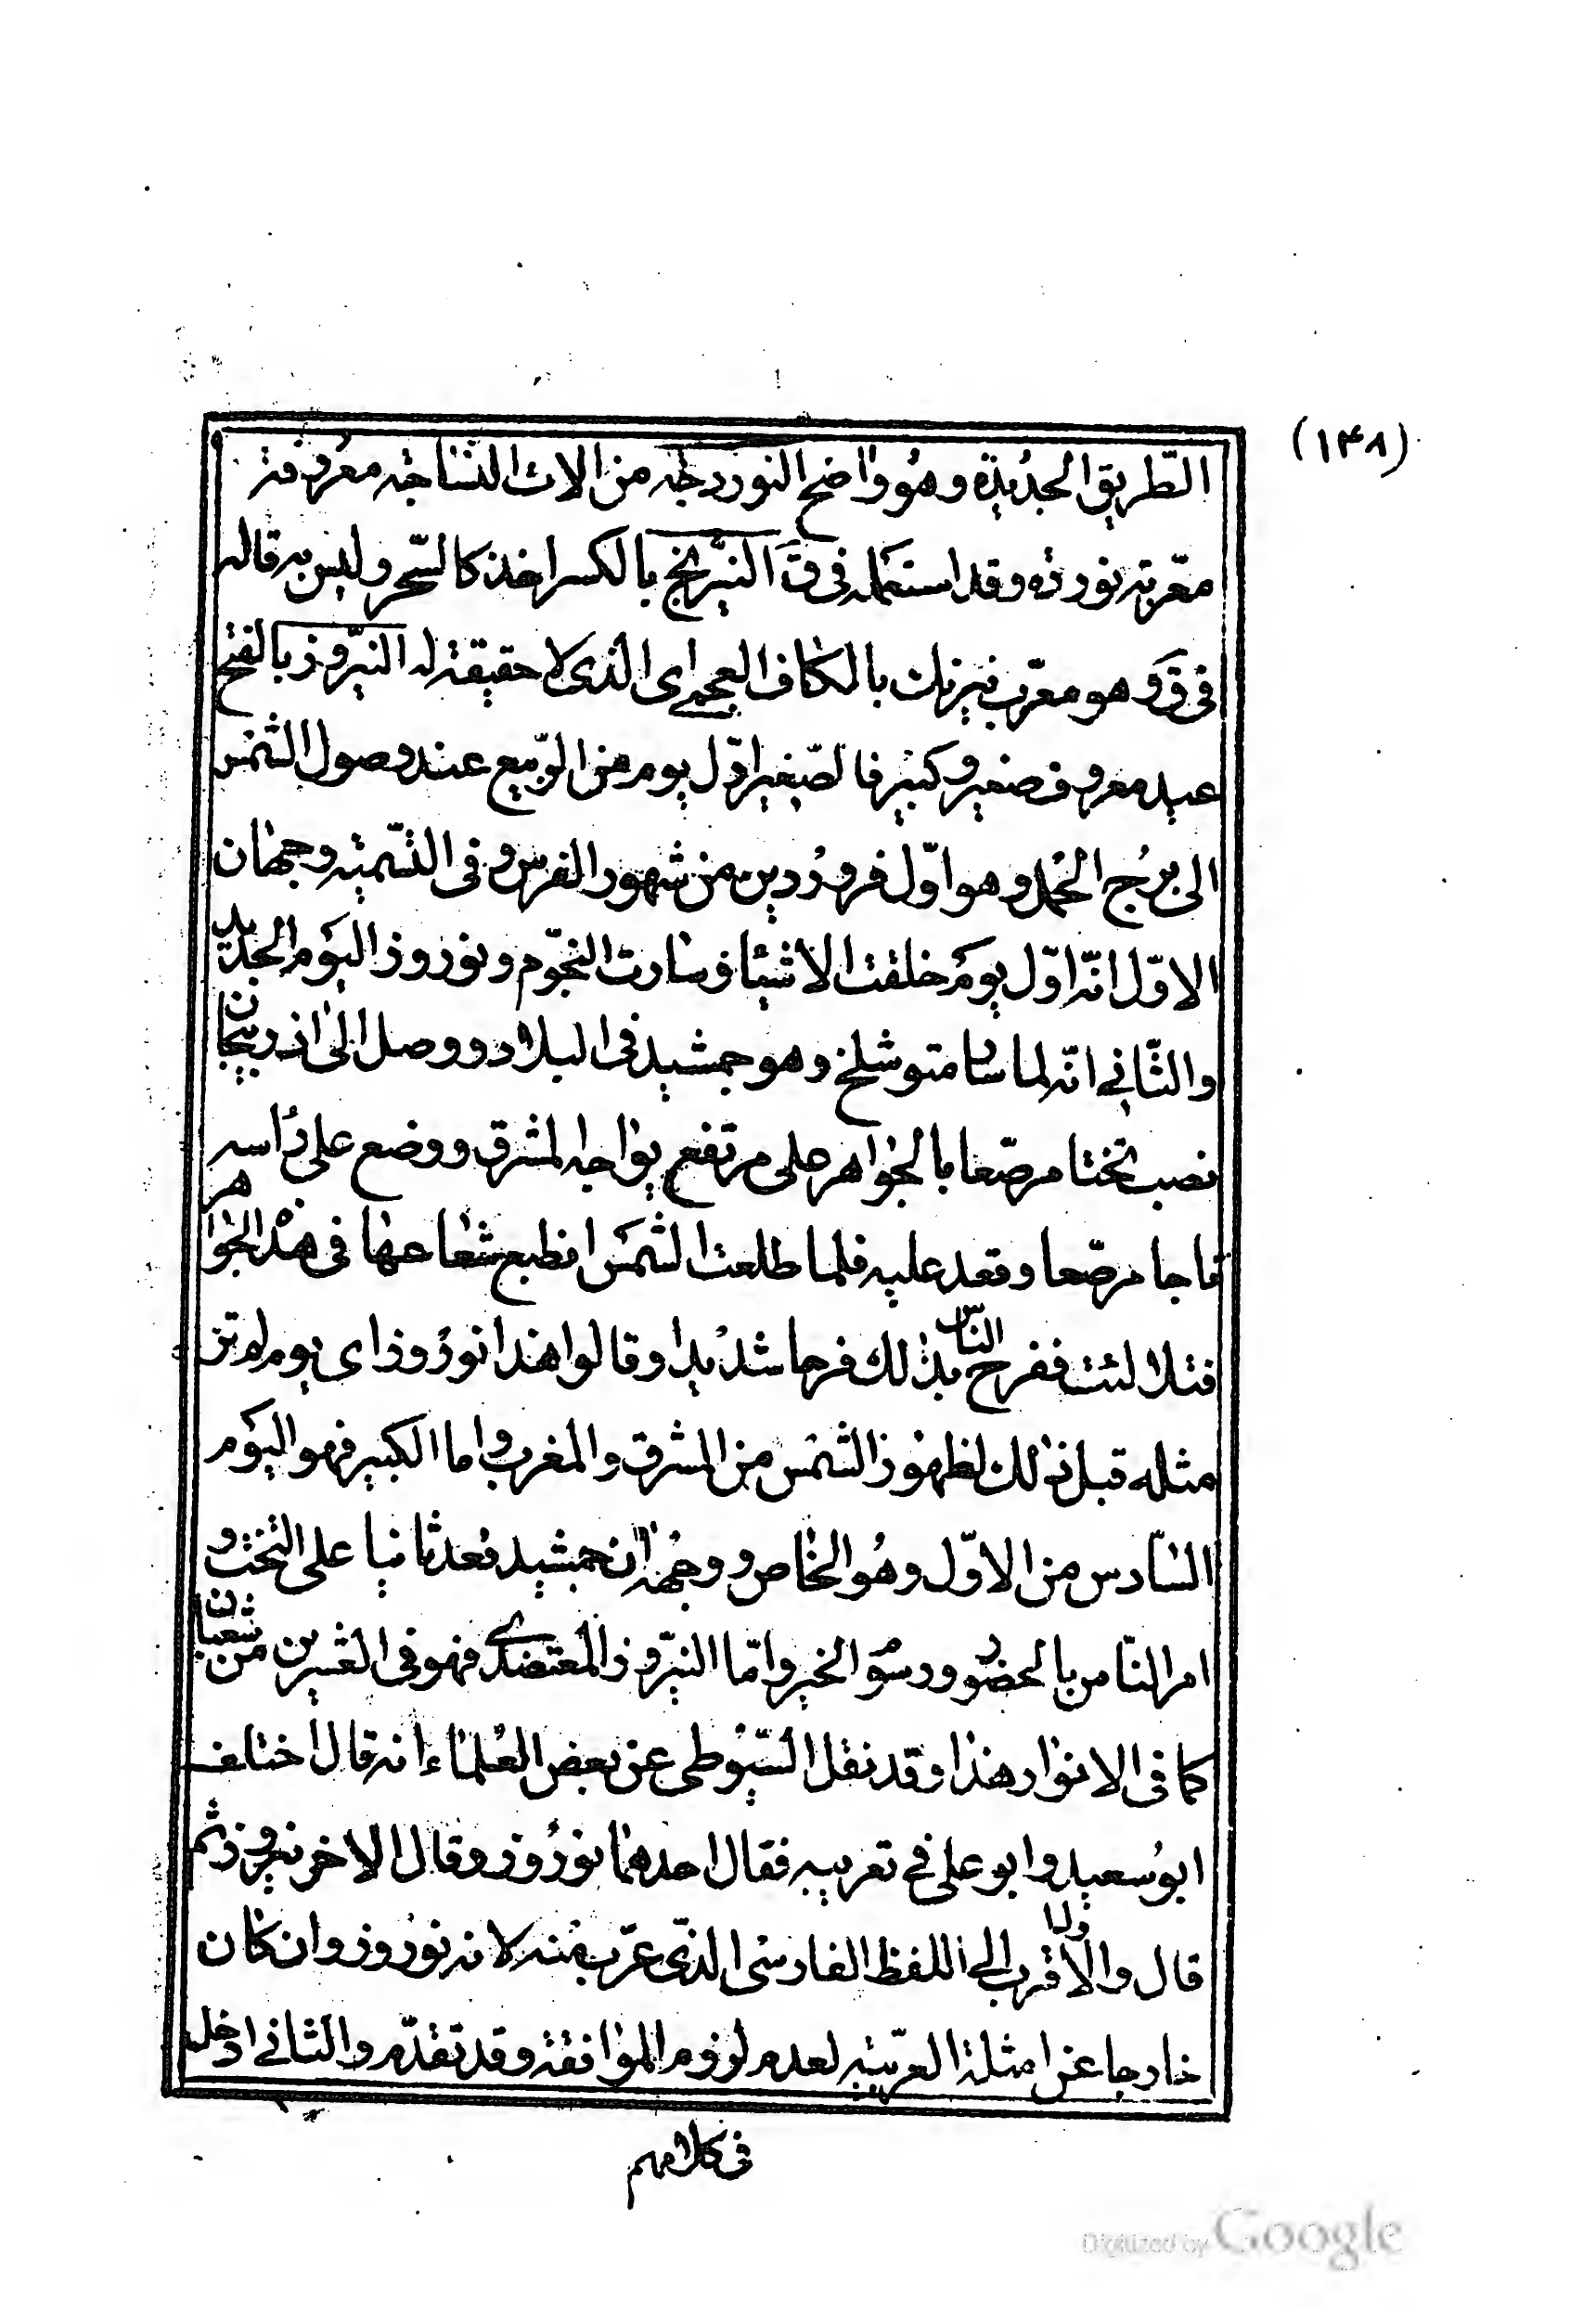 (۱۴۸)
الطّريق الجديدة وهو واضح النوردجه من الات النساجه معروفة
معرّبة نورده وقد استعمله فى ق النيرنج بالكسر اخذ كالسّحر وليس به قاله
فى ق وهو معرّب نيرنك بالكاف العجمى اى الذى لا حقيقة له النيروز بالفتح
عيد معروف صغير وكبير فالصّغير اوّل يوم من الرّبيع عند وصول الشمس
الى برج الحمل وهو اوّل فروردين من شهور الفرس وفى التّسمية وجهان
الاوّل انّه اوّل يوم خلقت الاشياء وسارت النجوم ونوروز اليوم الجديد
والثّانى انّه لما سار متوشلخ وهو جمشيد فى البلاد ووصل الى اذربيجان
نصب تختا مرصّعا بالجواهر على مرتفع يواجه المشرق ووضع على رأسه
تاجا مرصّعا وقعد عليه فلما طلعت الشمس انطبع شعاعها فى هذا الجواهر
فتلالئت ففرح الناس بذلك فرحا شديدا وقالوا هذا نوروز اى يوم لم تر
مثله قبل ذلك لظهور الشمس من المشرق والمغرب واما الكبير فهو اليوم
السّادس من الاوّل وهو الخاص ووجهه ان جمشيد قعد ثانيا على التخت و
امر النّاس بالحضور ورسوم الخير وامّا النيروز المعتضدى فهو فى العشرين من شعبان
كما فى الانوار هذا وقد نقل السّيوطى عن بعض العلماء انه قال اختلف
ابو سعيد وابو على فى تعريبه فقال احدهما نوروز وقال الاخر نيروز ثم
قال والاول اقرب الى اللفظ الفارسى الذى عرّب منه لانه نوروز وان كان
خارجا عن امثلة العربيّه لعدم لزوم الموافقة وقد تقدّم والثانى ادخل
فى كلامهم
Digitized by Google